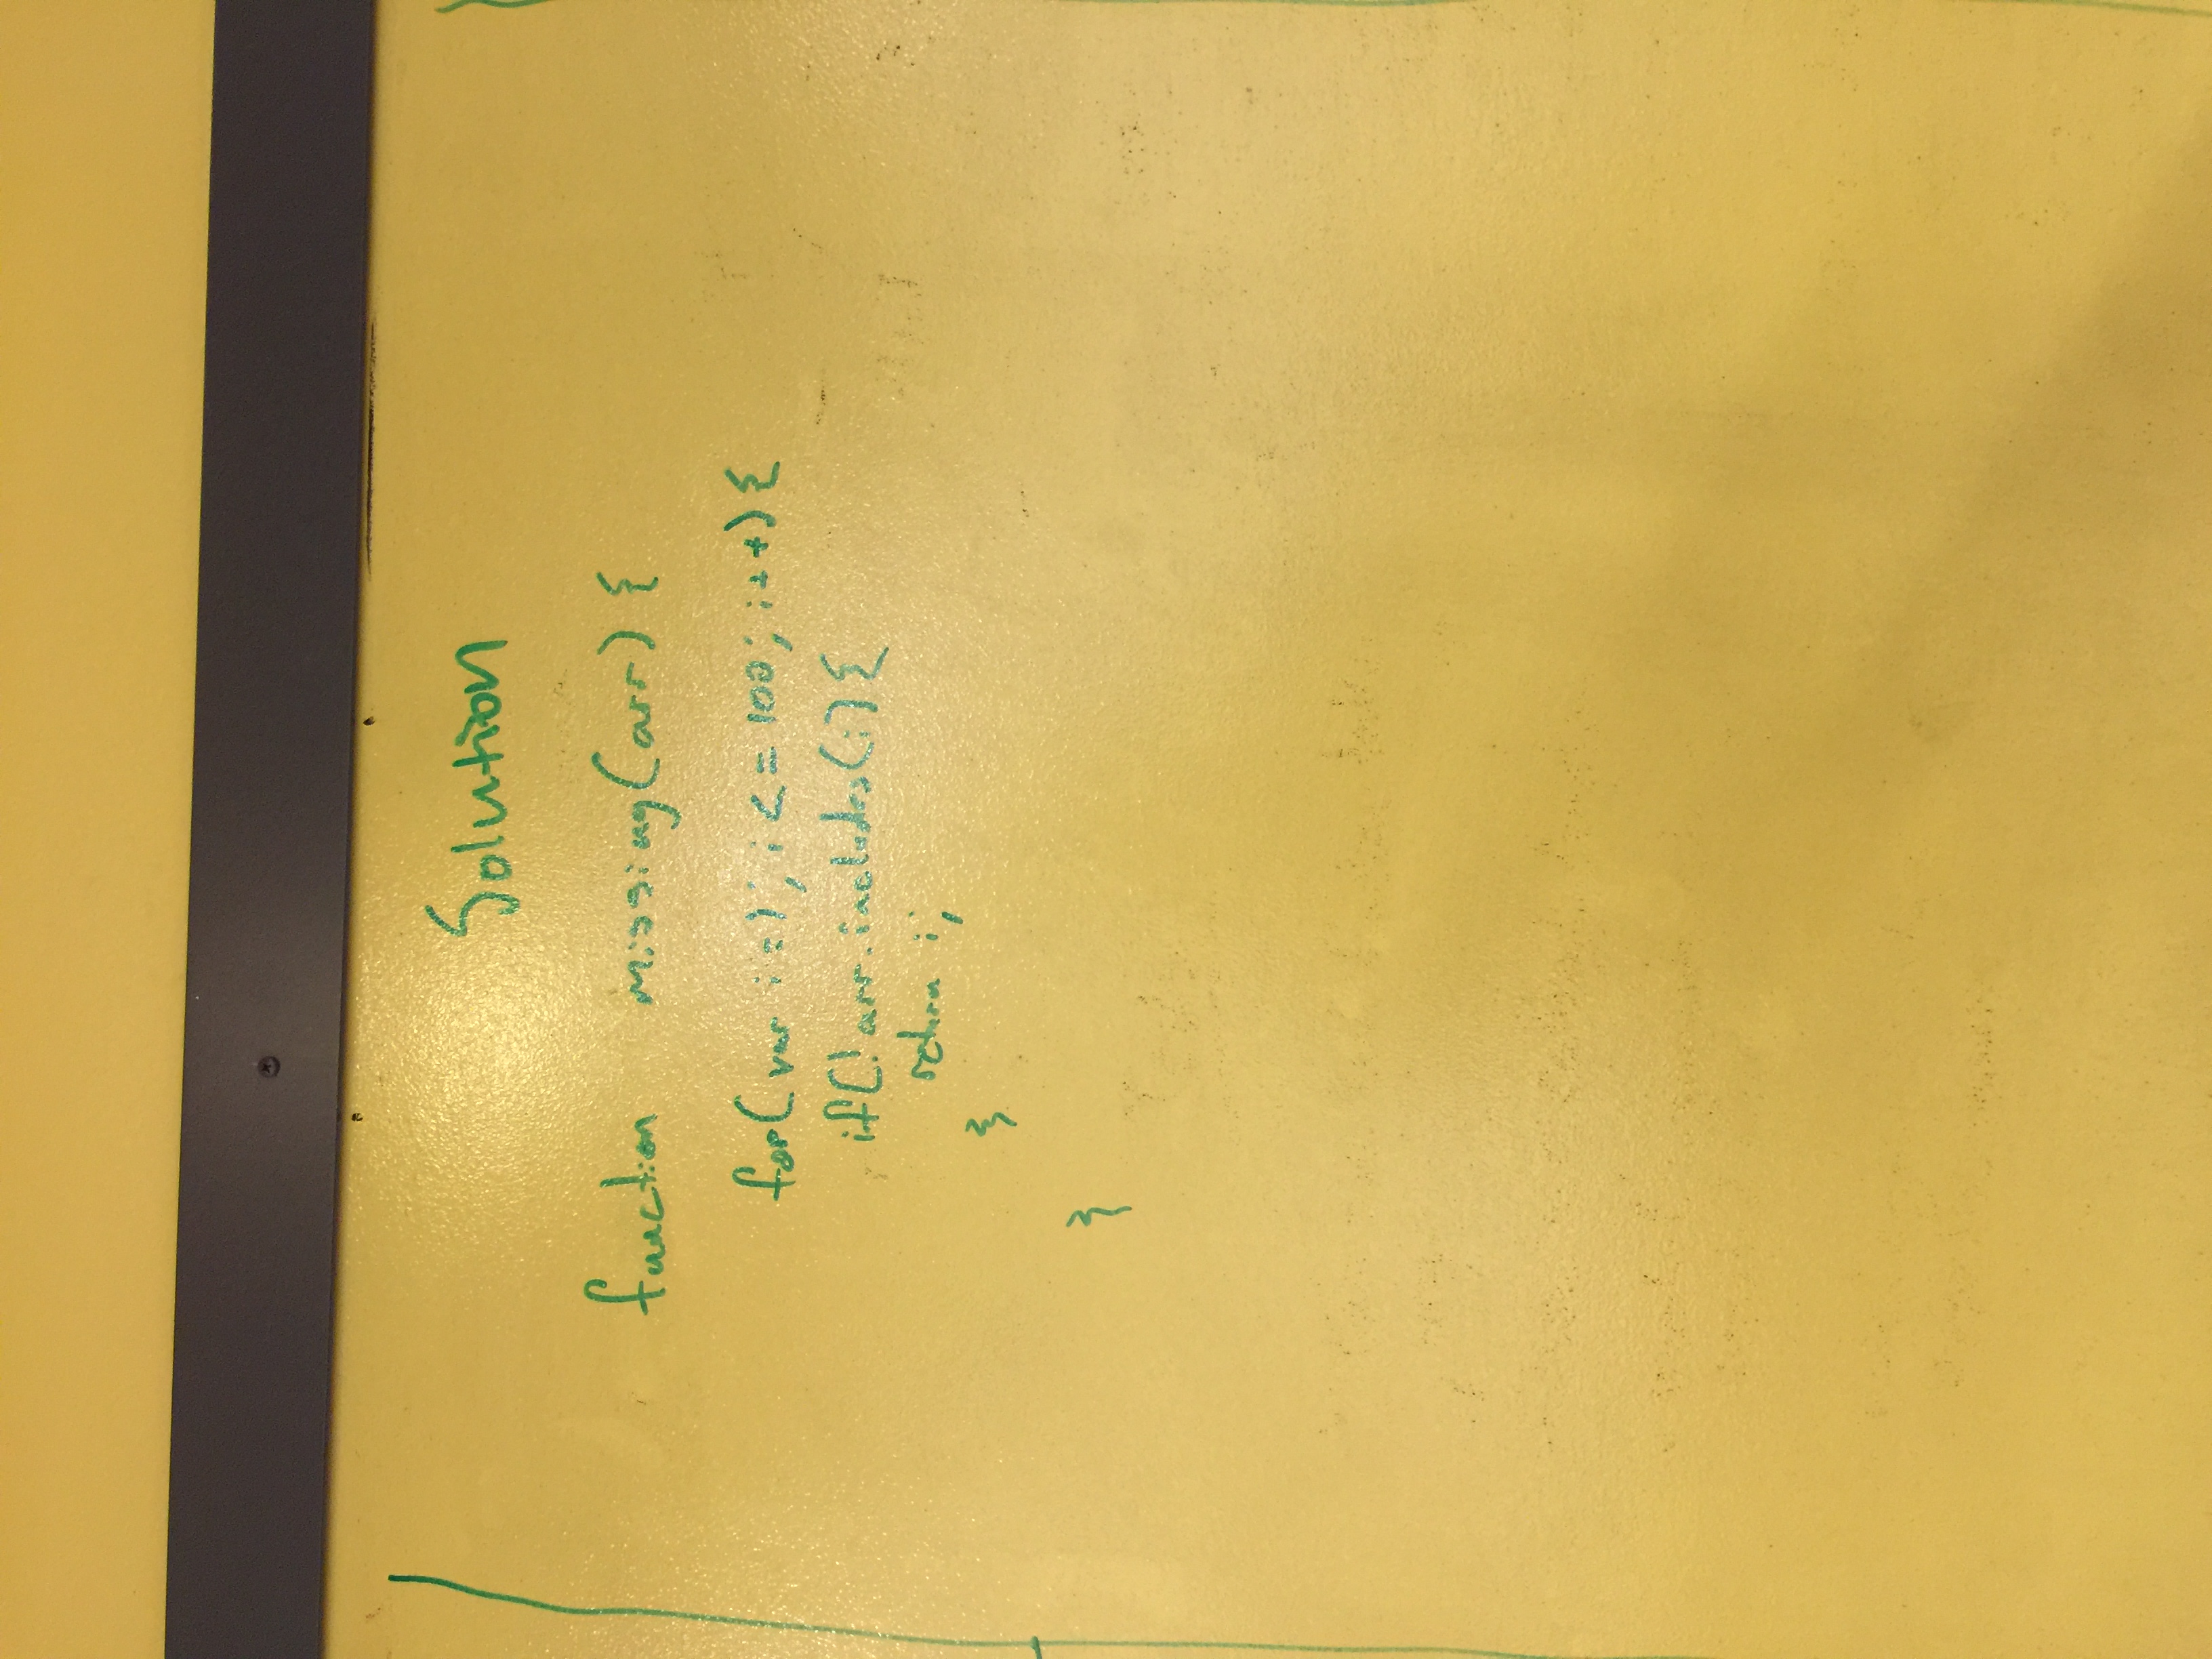 Solution
function missing(arr) {
for(var i=1; i <= 100; i++) {
if(!arr.includes(i) {
return i;
}
}